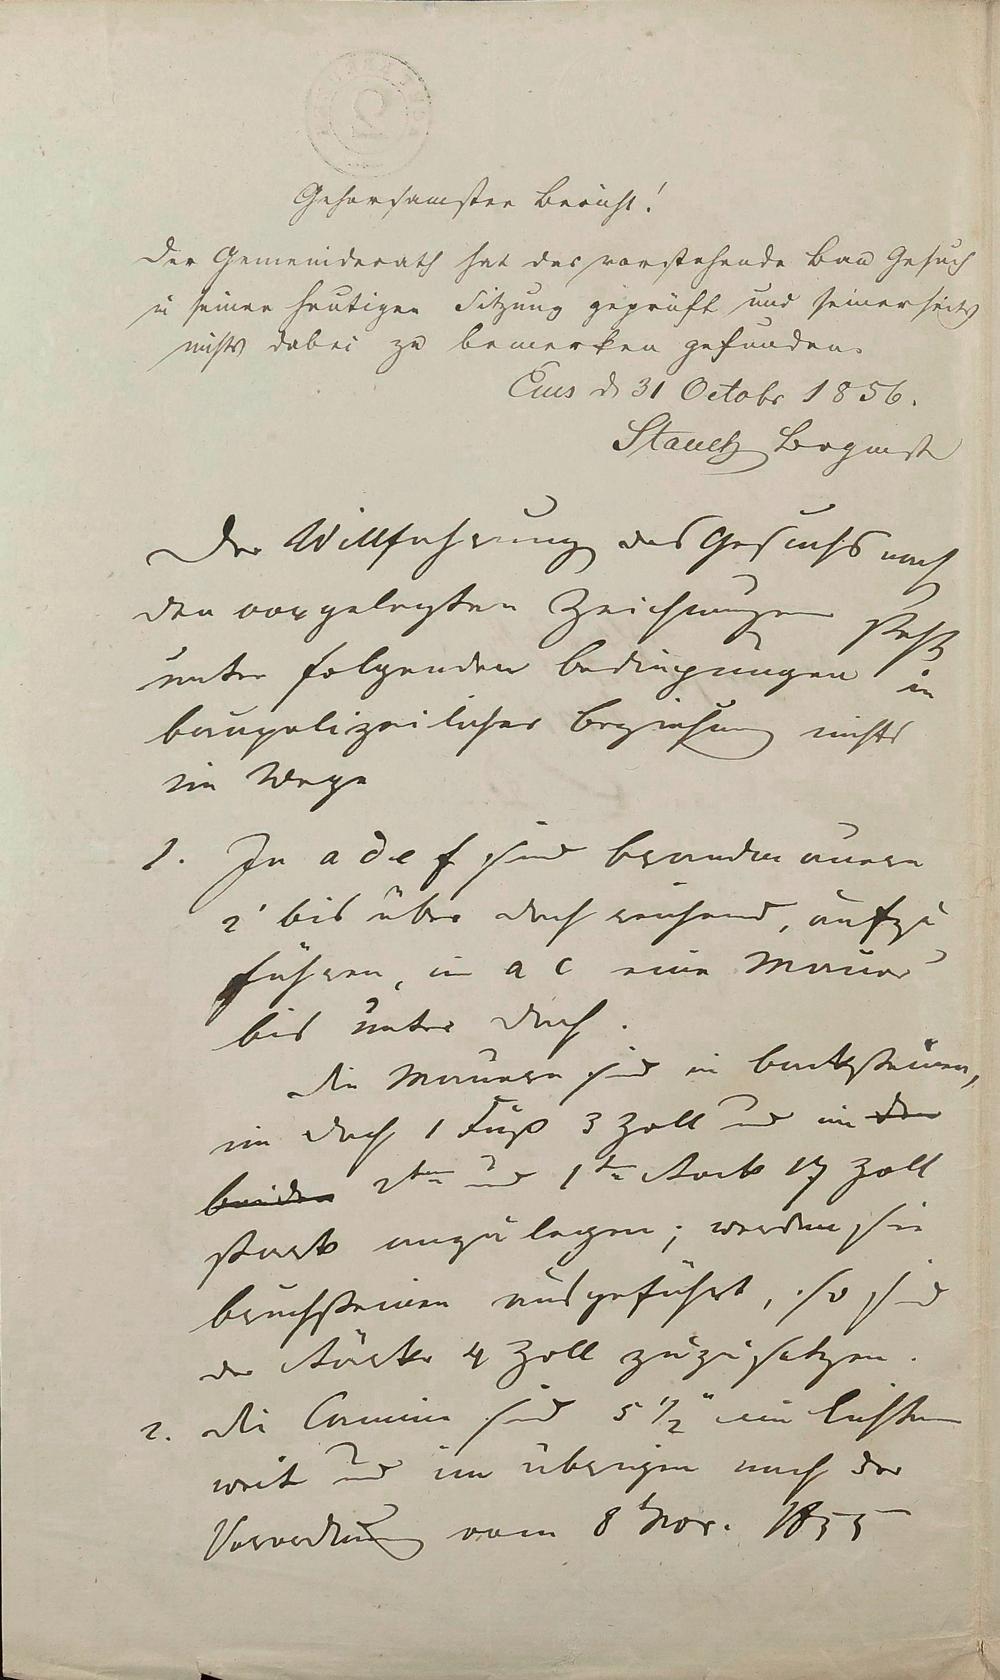 Gehorsamster Bericht!
Der Gemeinderath hat das vorstehende Bau Gesuch
in seiner heutigen Sitzung geprüft und seinerseits
nichts dabei zu bemerken gefunden.
Ems d. 31 Octobr 1856.
Stauch Brgmst
Der Willfahrung des Gesuchs nach
den vorgelegten Zeichnungen steht
unter folgenden Bedingungen in
baupolizeilicher Beziehung nichts
im Wege
1. In a d e f sind Brandmauern
2' bis über Dach reichend, aufzu
führen, in a c eine Mauer
bis unter Dach.
Die Mauern sind in Backsteinen,
im Dach 1 Fuß 3 Zoll und im den
beiden 2ten und 1ten Stock 17 Zoll
stark anzulegen; werden sie
Bruchsteinen ausgeführt, so sind
der Stärke 4 Zoll zuzusetzen.
2. Die Camine sind 5 1/2" im Lichten
weit und im übrigen nach der
Verordnung vom 8 Nov. 1855